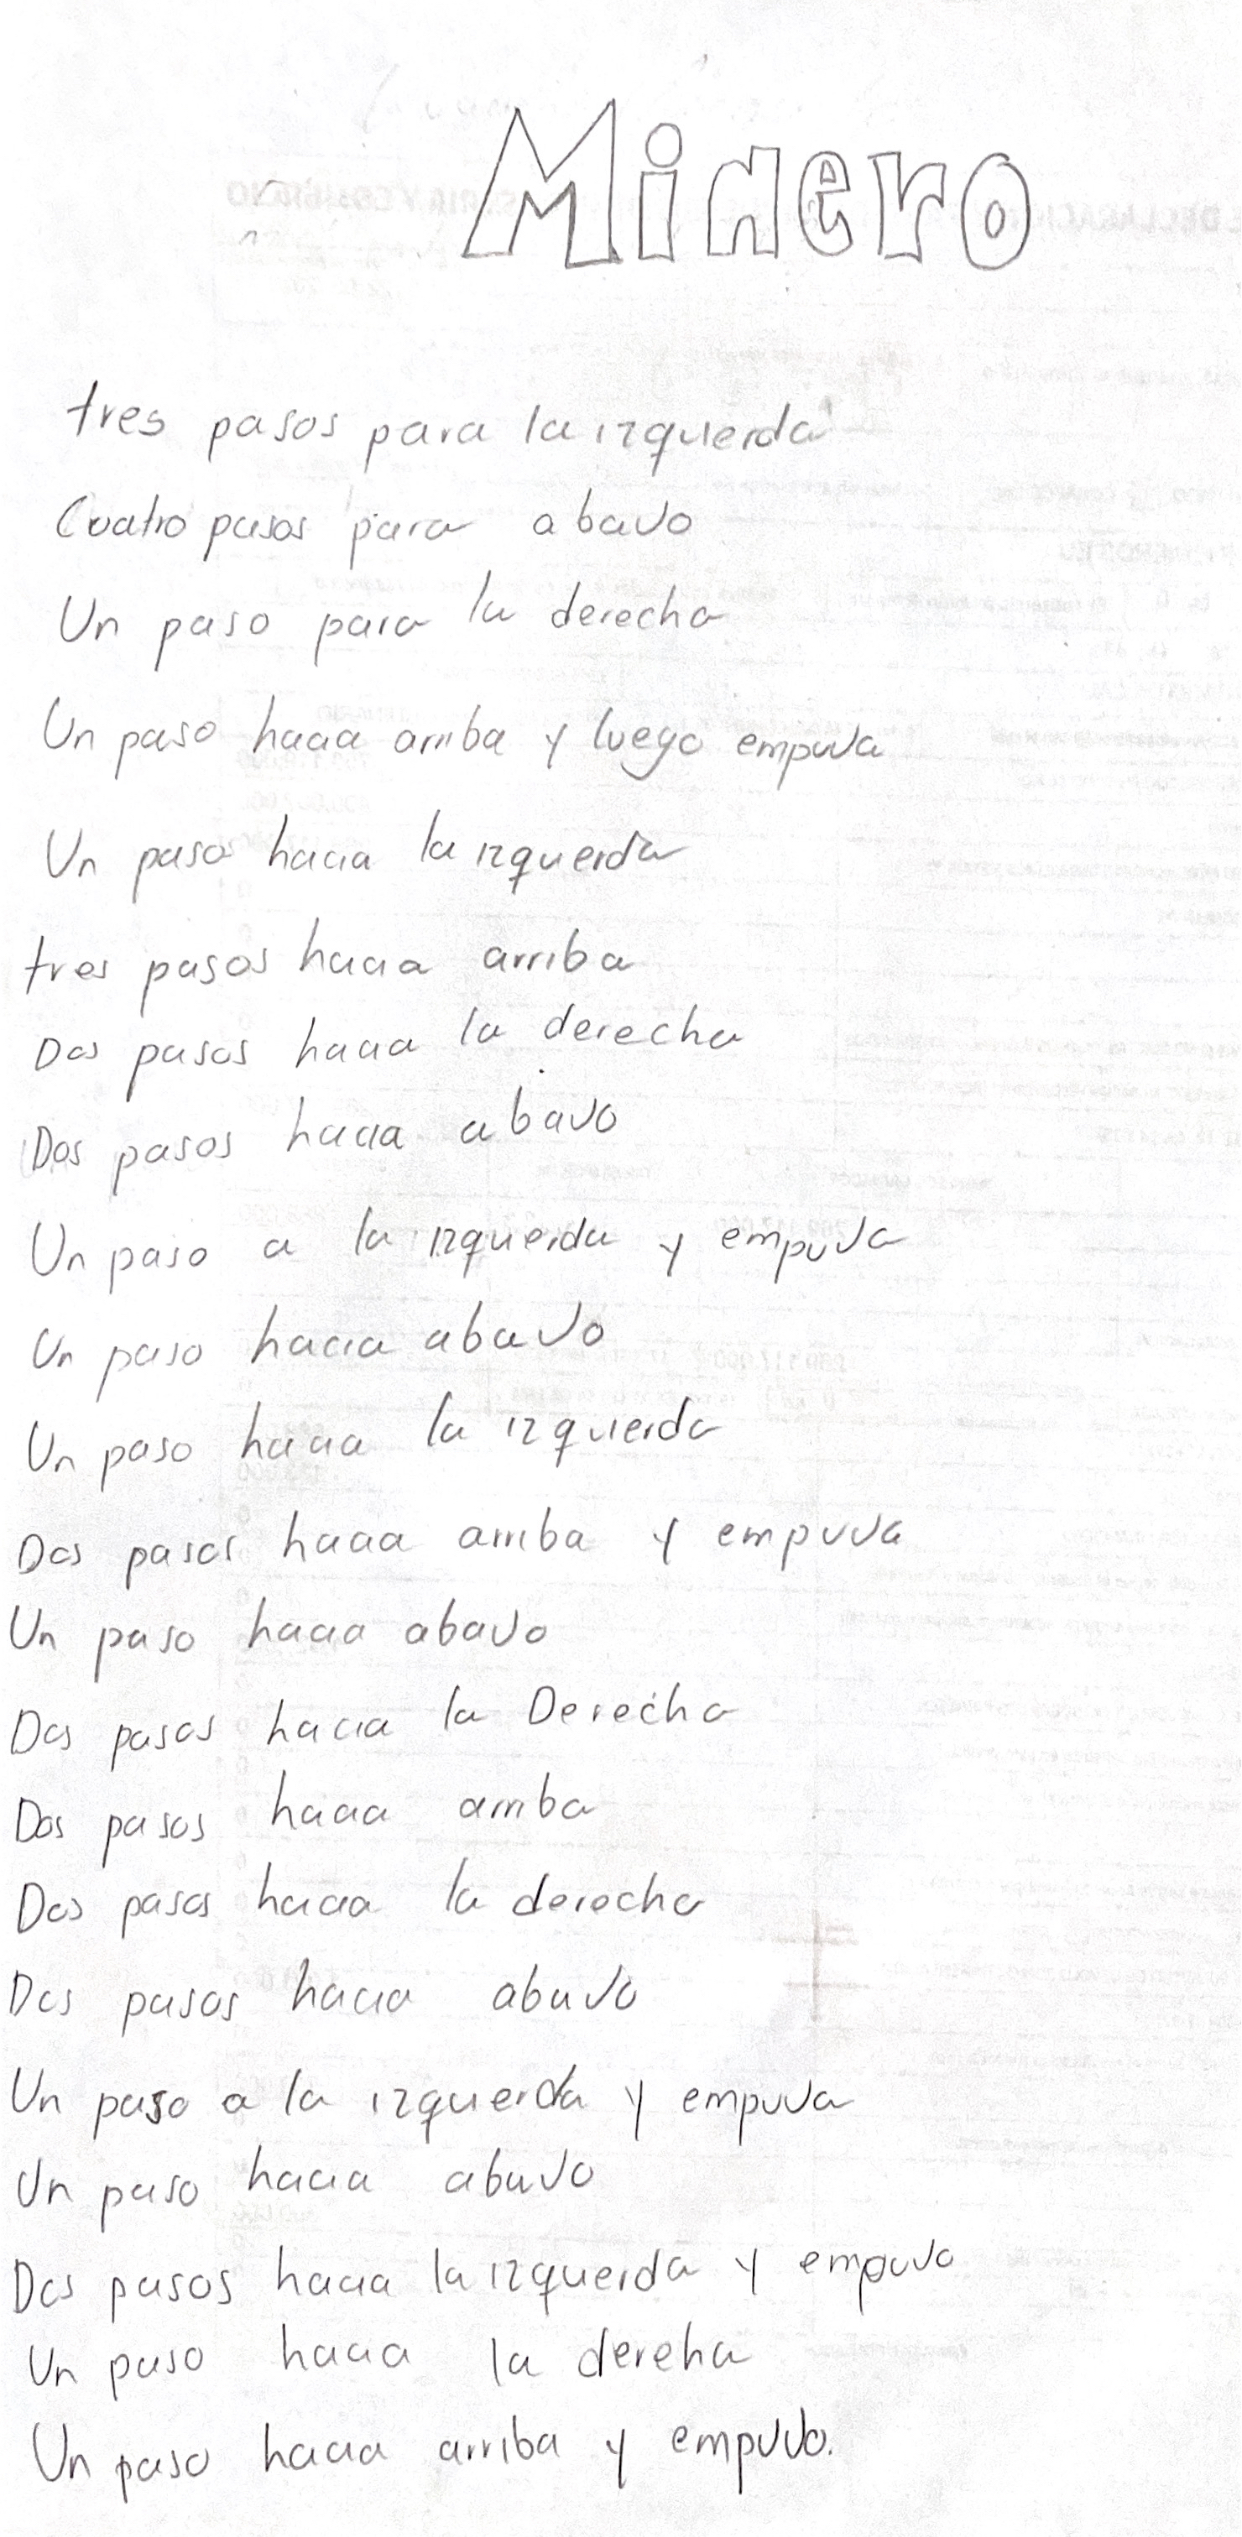 Minero
tres pasos para la izquierda
Cuatro pasos para abajo
Un paso para la derecha
Un paso hacia arriba y luego empuja
Un paso hacia la izquierda
tres pasos hacia arriba
Dos pasos hacia la derecha
Dos pasos hacia abajo
Un paso a la izquierda y empuja
Un paso hacia abajo
Un paso hacia la izquierda
Dos pasos hacia arriba y empuja
Un paso hacia abajo
Dos pasos hacia la Derecha
Dos pasos hacia arriba
Dos pasos hacia la derecha
Dos pasos hacia abajo
Un paso a la izquierda y empuja
Un paso hacia abajo
Dos pasos hacia la izquierda y empujo
Un paso hacia la dereha
Un paso hacia arriba y empujo.